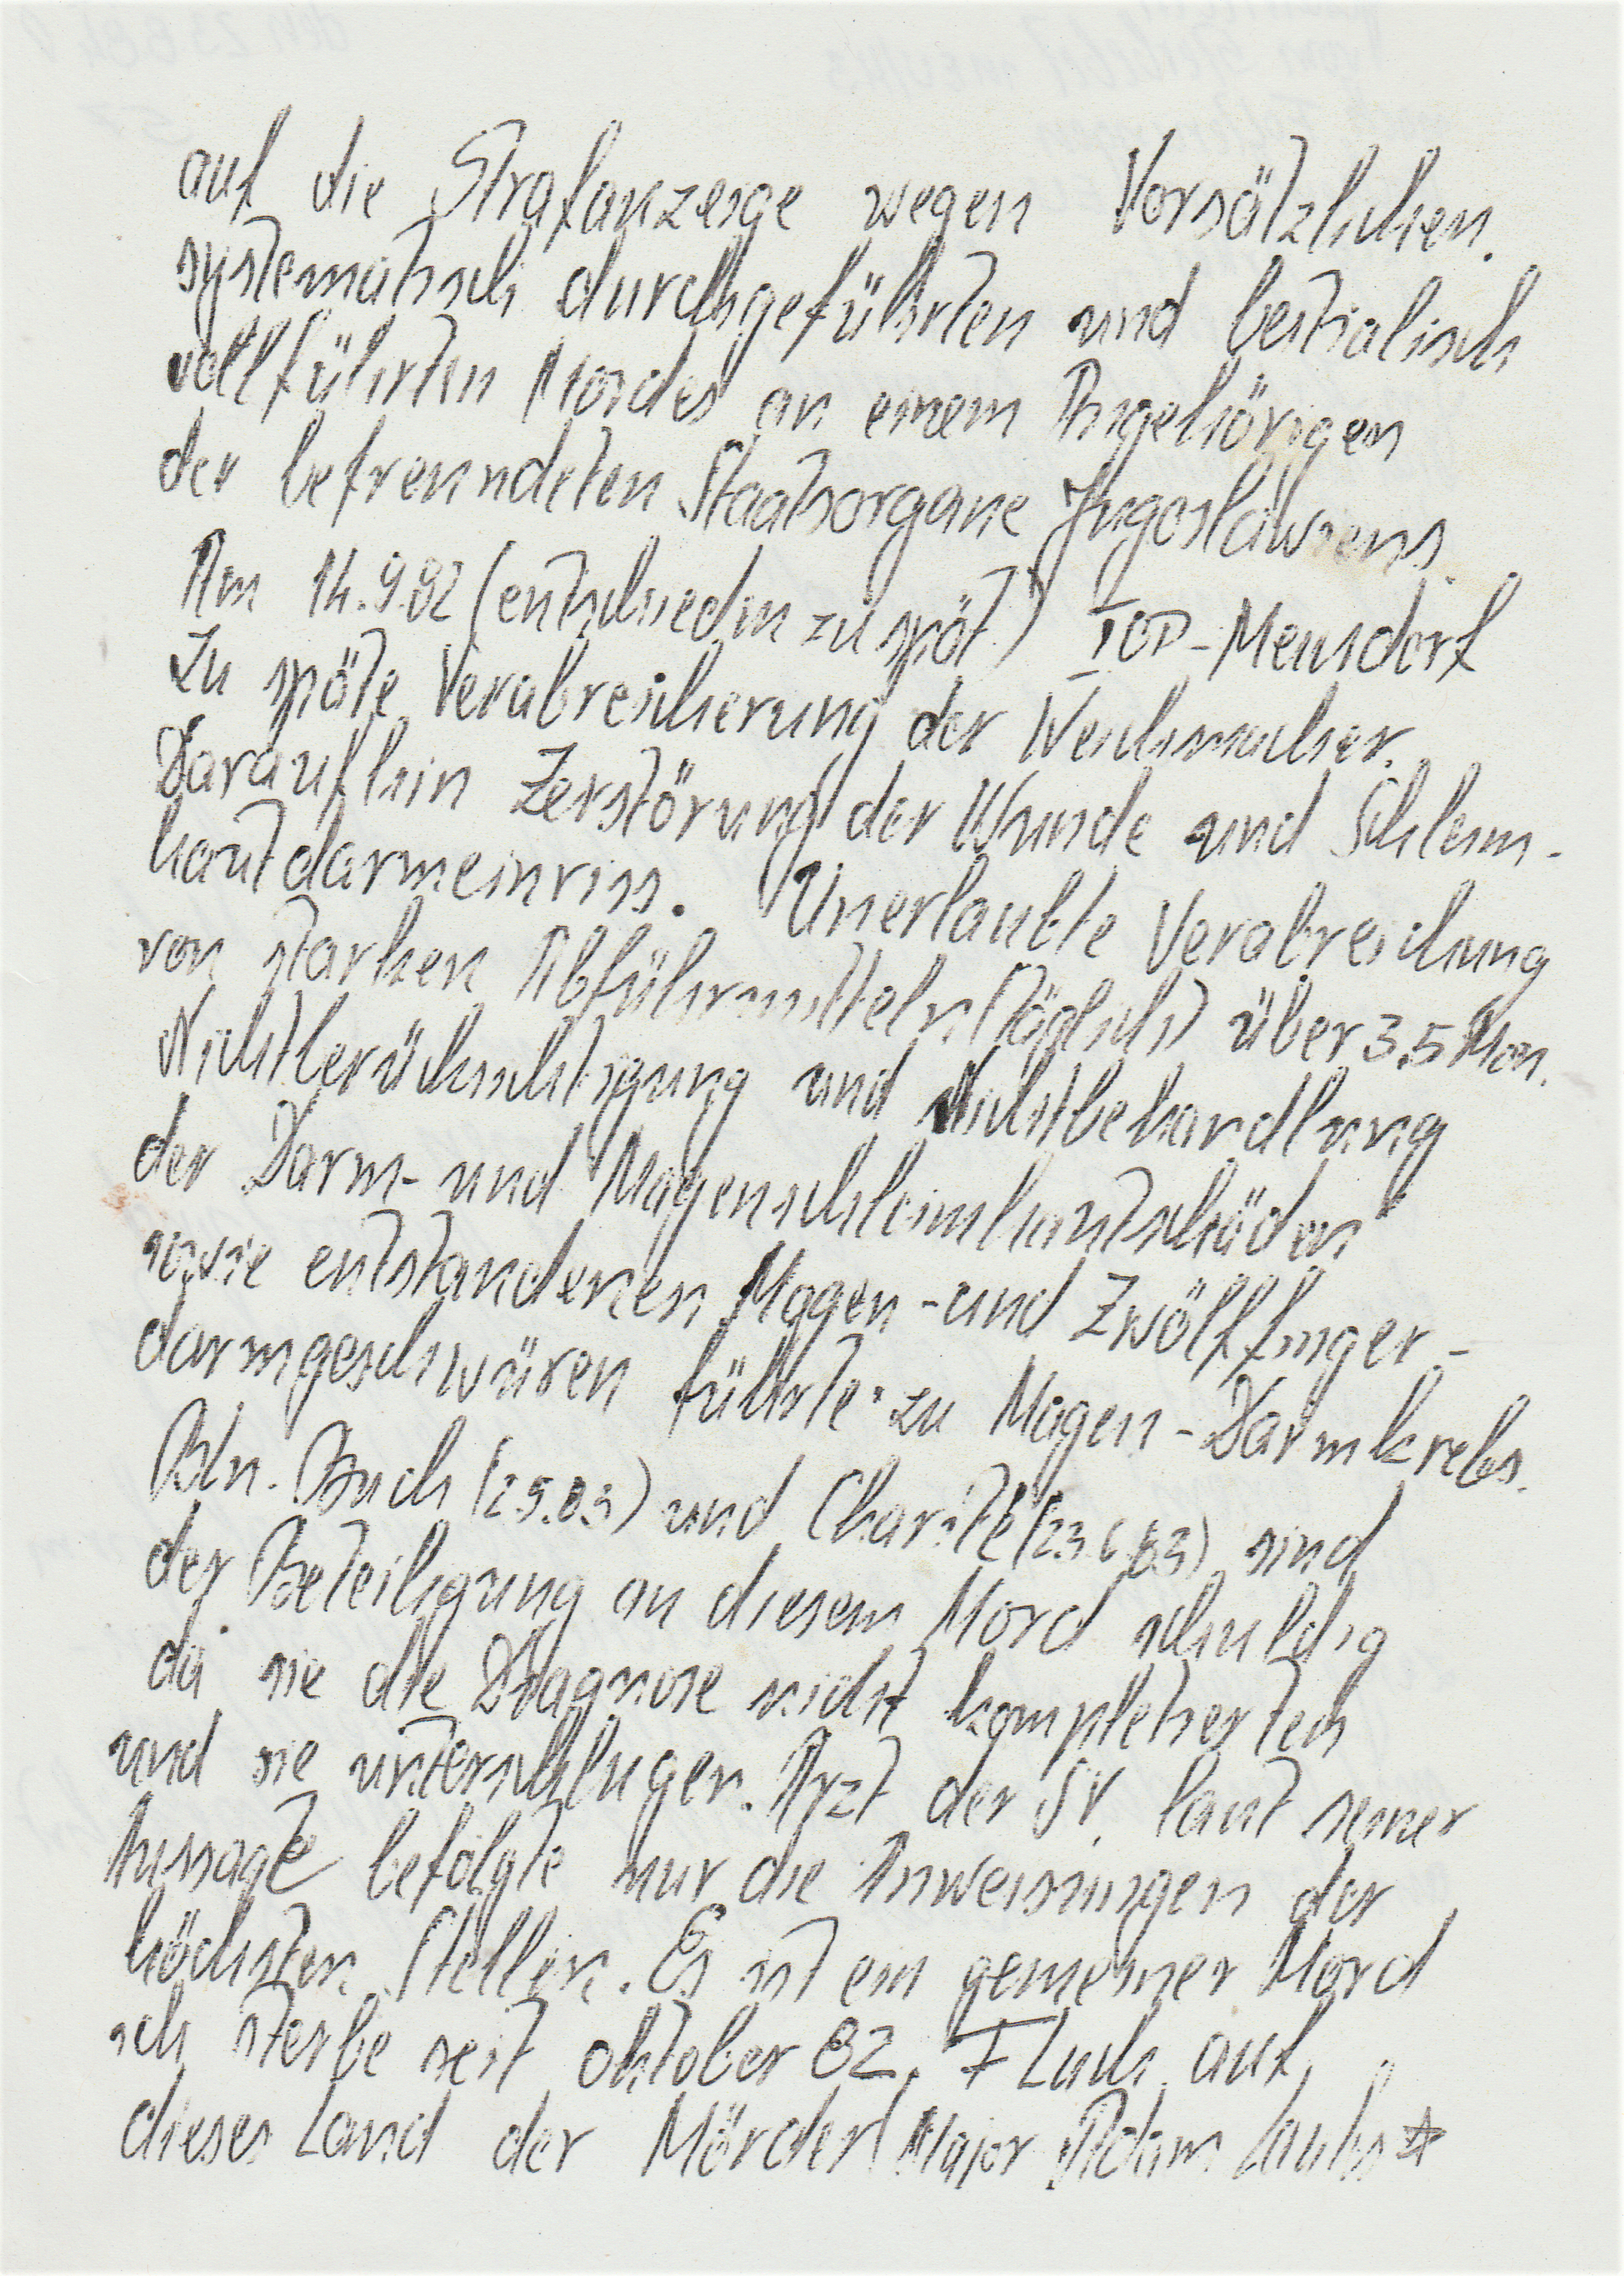 auf die Strafanzeige wegen Vorsätzlichen.
systematisch durchgeführten und bestialisch
vollführten Mordes an einem Angehörigen
der befreundeten Staatsorgane Jugoslawiens.
Am 14.9.82 (entschieden zu spät)
Zu späte Verabreicherung der Weichmacher.
Daraufhin Zerstörung der Wunde und Schleim-
hautdarmeinriss. Unerlaubte Verabreichung
von starken Abführmitteln (täglich) über 3,5 Mon.
Nichtberücksichtigung und Nichtbehandlung
der Darm- und Magenschleimhautschäden
sowie entstandenen Magen- und Zwölffinger-
darmgeschwüren führte zu Magen-Darmkrebs.
Bln. Buch und Charité (23.6.83) sind
der Beteiligung an diesem Mord schuldig
da sie die Diagnose nicht
und sie unterschlugen. Arzt der SV. laut seiner
Aussage befolgte nur die Anweisungen der
höchsten Stellen. Es ist ein gemeiner Mord
ich sterbe seit Oktober 82. Fluch auf
dieses Land der Mörder! Major Adam